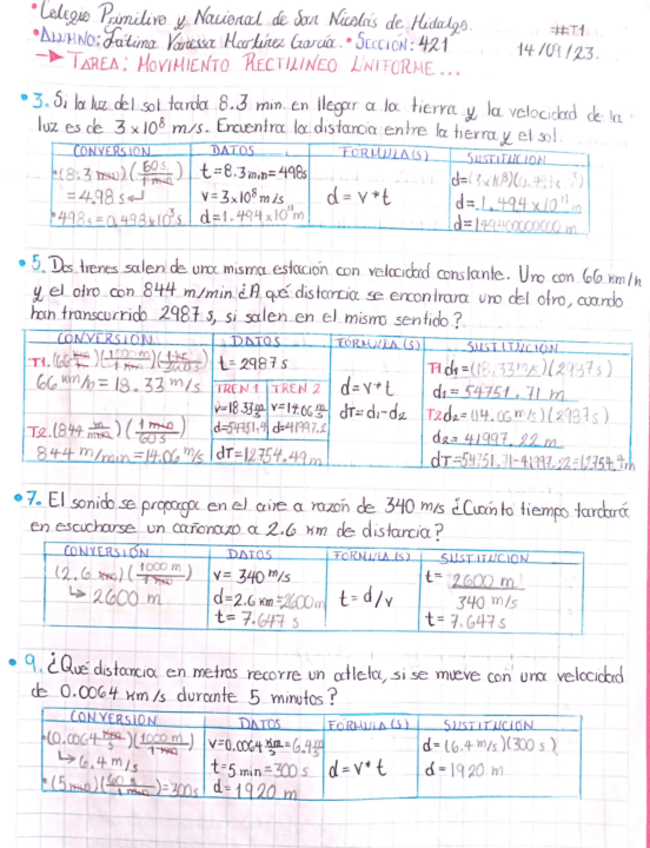 • Colegio Primitivo y Nacional de San Nicolás de Hidalgo.
##T1
• ALUMNO: Fátima Vanessa Martínez García. • SECCIÓN: 421
14/09/23.
→ TAREA: MOVIMIENTO RECTILINEO UNIFORME...
• 3. Si la luz del sol tarda 8.3 min en llegar a la tierra y la velocidad de la
luz es de 3x10⁸ m/s. Encuentra la distancia entre la tierra y el sol.
CONVERSION DATOS FORMULA(S) SUSTITUCION
•(8.3 min)(60 s/1 min) t=8.3min=498s d=(3x10⁸)(
=4.98 s v=3x10⁸ m/s d = v*t d=1.494x10¹¹ m
•498s=0.498x10³s d=1.494x10¹¹m d=149400000000 m
• 5. Dos trenes salen de una misma estación con velocidad constante. Uno con 66 km/h
y el otro con 844 m/min ¿A qué distancia se encontrara uno del otro, cuando
han transcurrido 2987 s, si salen en el mismo sentido?
CONVERSION DATOS FORMULA(S) SUSTITUCION
T1.(66 t=2987s T1 d₁=(18.33m/s)(2987s)
66 km/h=18.33 m/s TREN 1 TREN 2 d=v*t d₁=54751.71 m
v=18.33 m/s v=14.06 m/s dT=d₁-d₂ T2 d₂=(14.06 m/s)(2987s)
T2.(844 m/min)(1 min/60 s) d=54751.4 d=41997.2 d₂=41997.22 m
844 m/min=14.06 m/s dT=12754.49m dT=54751.71-41997.22=12754.4m
• 7. El sonido se propaga en el aire a razón de 340 m/s ¿Cuánto tiempo tardará
en escucharse un cañonazo a 2.6 km de distancia?
CONVERSIÓN DATOS FORMULA(S) SUSTITUCION
(2.6 km)(1000 m/1 km) v= 340 m/s t= 2600 m
↳ 2600 m d=2.6 km=2600m t=d/v 340 m/s
t= 7.647 s t= 7.647 s
• 9. ¿Qué distancia en metros recorre un atleta, si se mueve con una velocidad
de 0.0064 km/s durante 5 minutos?
CONVERSION DATOS FORMULA(S) SUSTITUCION
•(0.0064 km/s)(1000 m/1 km) v=0.0064 km/s=6.4 m/s d=(6.4 m/s)(300 s)
↳6.4 m/s t=5min=300s d=v*t d=1920 m
•(5 min)(60 s/1 min)=300s d=1920 m